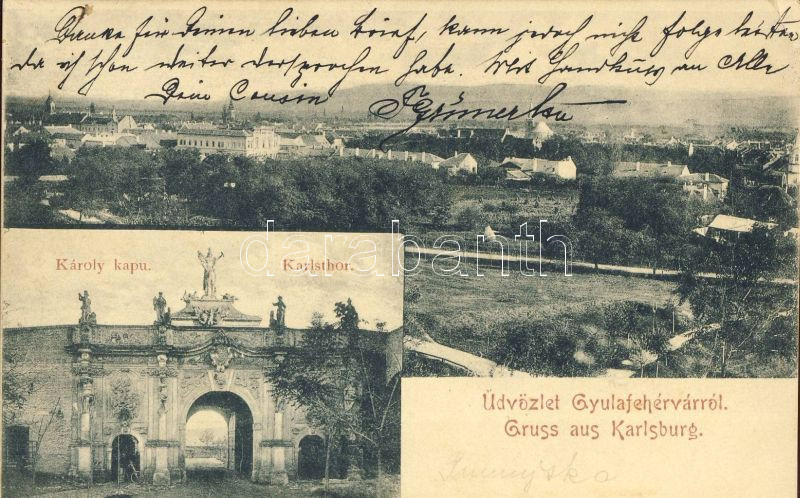 Danke für Deinen lieben Brief, kann jedoch nicht folge leisten
da ich schon weiter versprochen habe. Mit Handkuss an Alle
Dein Cousin
Károly kapu. Karlsthor.
darabanth
Üdvözlet Gyulafehérvárról.
Gruss aus Karlsburg.